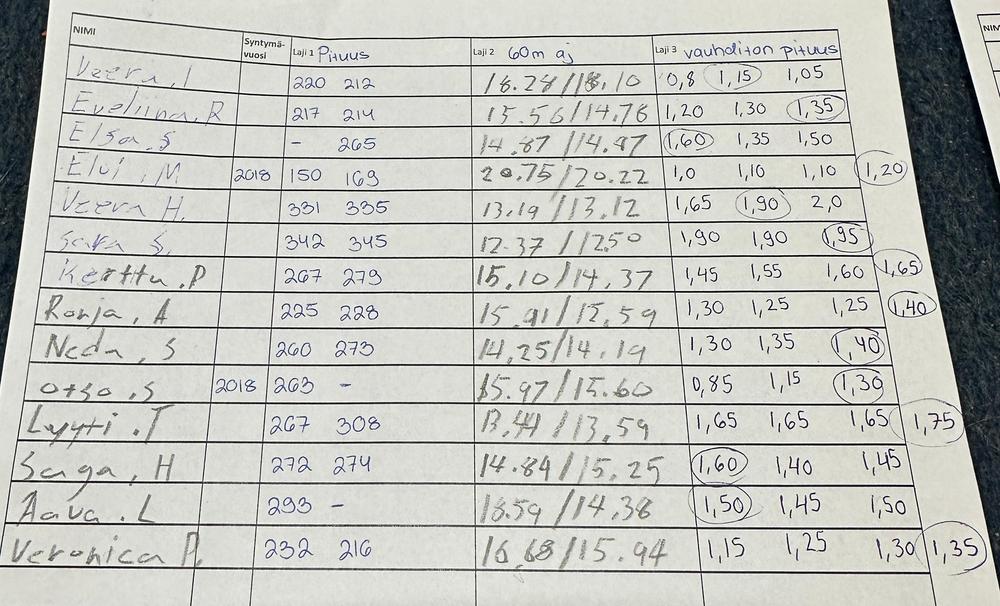 NIMI Syntymä-vuosi Laji 1 Pituus Laji 2 60m aj Laji 3 vauhditon pituus
Veera, I 220 212 18.28/18.10 0,8 1,15 1,05
Eveliina, R 217 214 15.56/14.76 1,20 1,30 1,35
Elsa, S - 265 14.87/14.97 1,60 1,35 1,50
Elvi, M 2018 150 169 20.75/20.22 1,0 1,10 1,10 1,20
Veera H. 331 335 13.19/13.12 1,65 1,90 2,0
Sara S. 342 345 12.37/12.50 1,90 1,90 1,95
Kerttu, P 267 279 15.10/14.37 1,45 1,55 1,60 1,65
Ronja, A 225 228 15.91/15.59 1,30 1,25 1,25 1,40
Neda, S 260 273 14,25/14.19 1,30 1,35 1,40
Otso, S 2018 263 - 15.97/15.60 0,85 1,15 1,30
Lyyti. T 267 308 13.44/13.59 1,65 1,65 1,65 1,75
Saga, H 272 274 14.84/15.25 1,60 1,40 1,45
Aava. L 293 - 16.59/14.38 1,50 1,45 1,50
Veronica P. 232 216 16.68/15.94 1,15 1,25 1,30 1,35